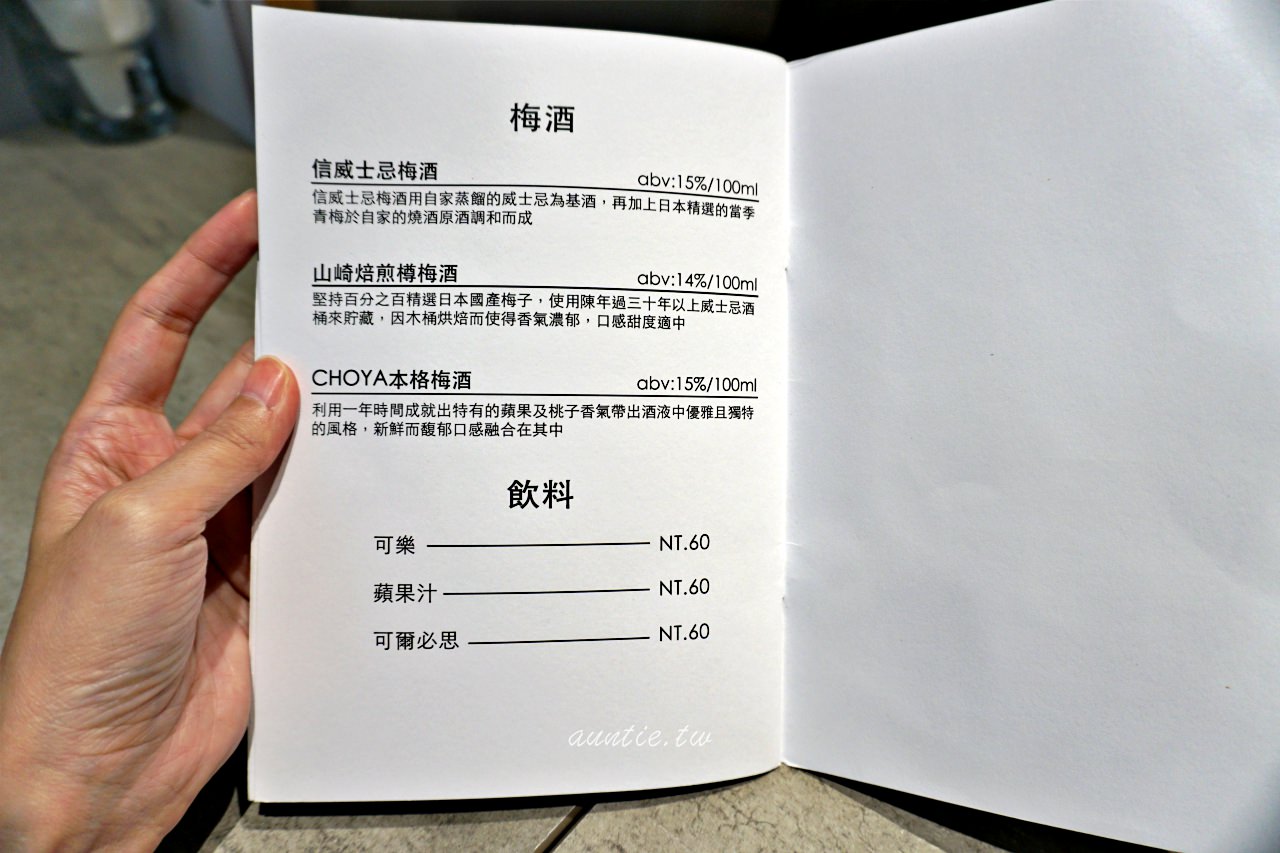 梅酒
信威士忌梅酒 abv:15%/100ml
信威士忌梅酒用自家蒸餾的威士忌為基酒，再加上日本精選的當季
青梅於自家的燒酒原酒調和而成
山崎焙煎樽梅酒 abv:14%/100ml
堅持百分之百精選日本國產梅子，使用陳年過三十年以上威士忌酒
桶來貯藏，因木桶烘焙而使得香氣濃郁，口感甜度適中
CHOYA本格梅酒 abv:15%/100ml
利用一年時間成就出特有的蘋果及桃子香氣帶出酒液中優雅且獨特
的風格，新鮮而馥郁口感融合在其中
飲料
可樂 NT.60
蘋果汁 NT.60
可爾必思 NT.60
auntie.tw